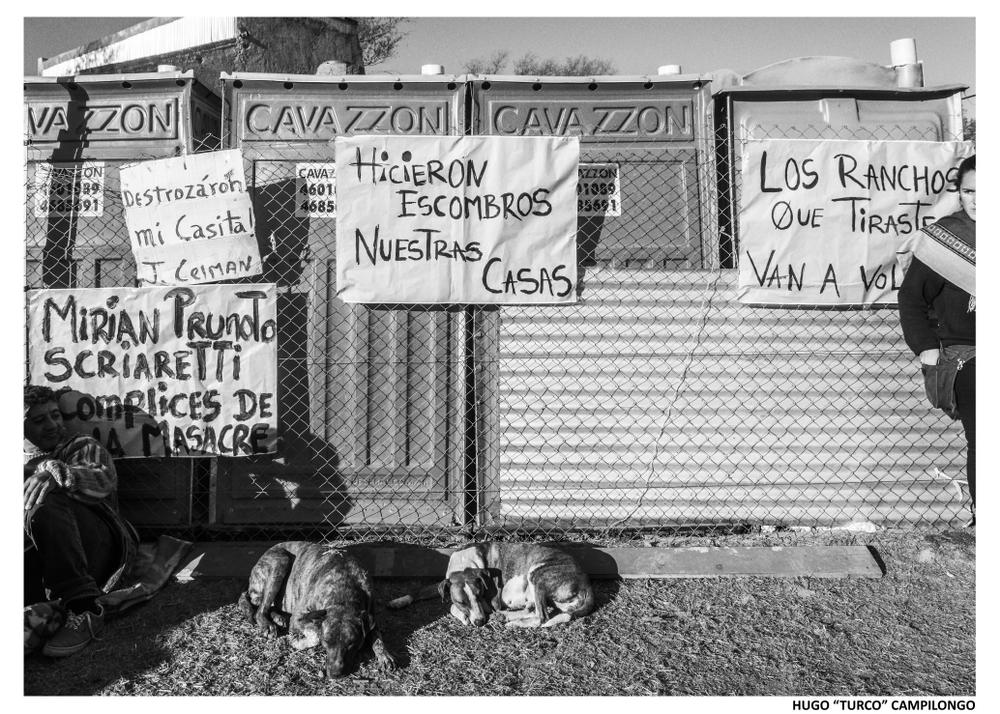 VAZZON
CAVAZZON
CAVAZZON
4685691
DESTROZÁRON
mi Casita!
J. CEIMAN
HICIERON
ESCOMBROS
NUESTRAS
CASAS
LOS RANCHOS
QUE TIRASTE
VAN A VOL
MIRIAN PRUNOTO
SCRIARETTI
COMPLICES DE
LA MASACRE
HUGO “TURCO” CAMPILONGO